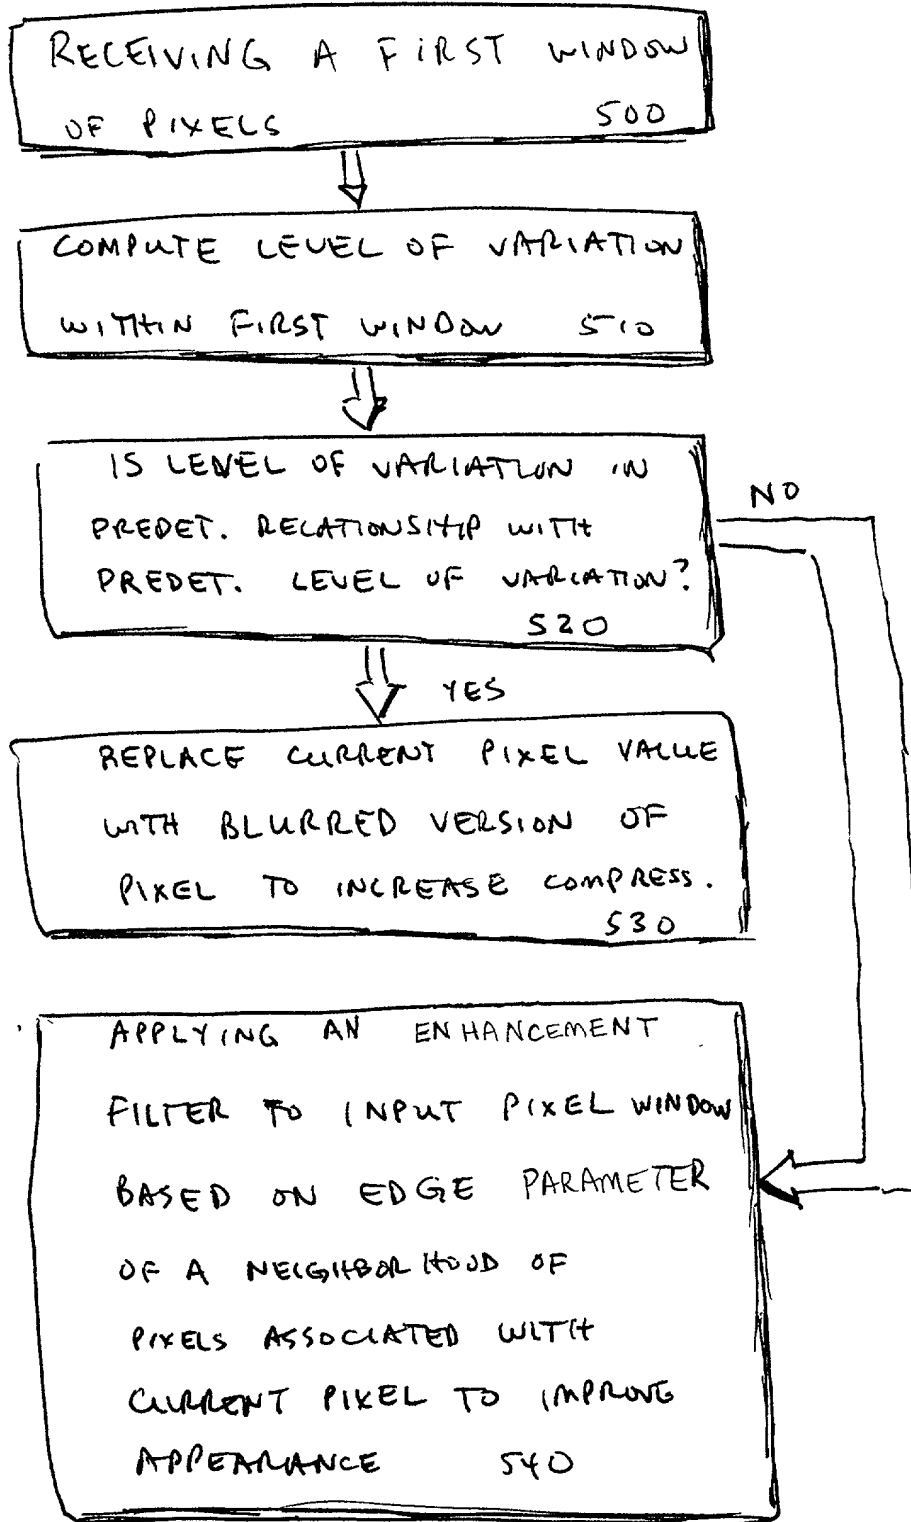 RECEIVING A FIRST WINDOW
OF PIXELS 500
COMPUTE LEVEL OF VARIATION
WITHIN FIRST WINDOW 510
IS LEVEL OF VARIATION IN
PREDET. RELATIONSHIP WITH
PREDET. LEVEL OF VARIATION?
520
NO
YES
REPLACE CURRENT PIXEL VALUE
WITH BLURRED VERSION OF
PIXEL TO INCREASE COMPRESS.
530
APPLYING AN ENHANCEMENT
FILTER TO INPUT PIXEL WINDOW
BASED ON EDGE PARAMETER
OF A NEIGHBORHOOD OF
PIXELS ASSOCIATED WITH
CURRENT PIXEL TO IMPROVE
APPEARANCE 540